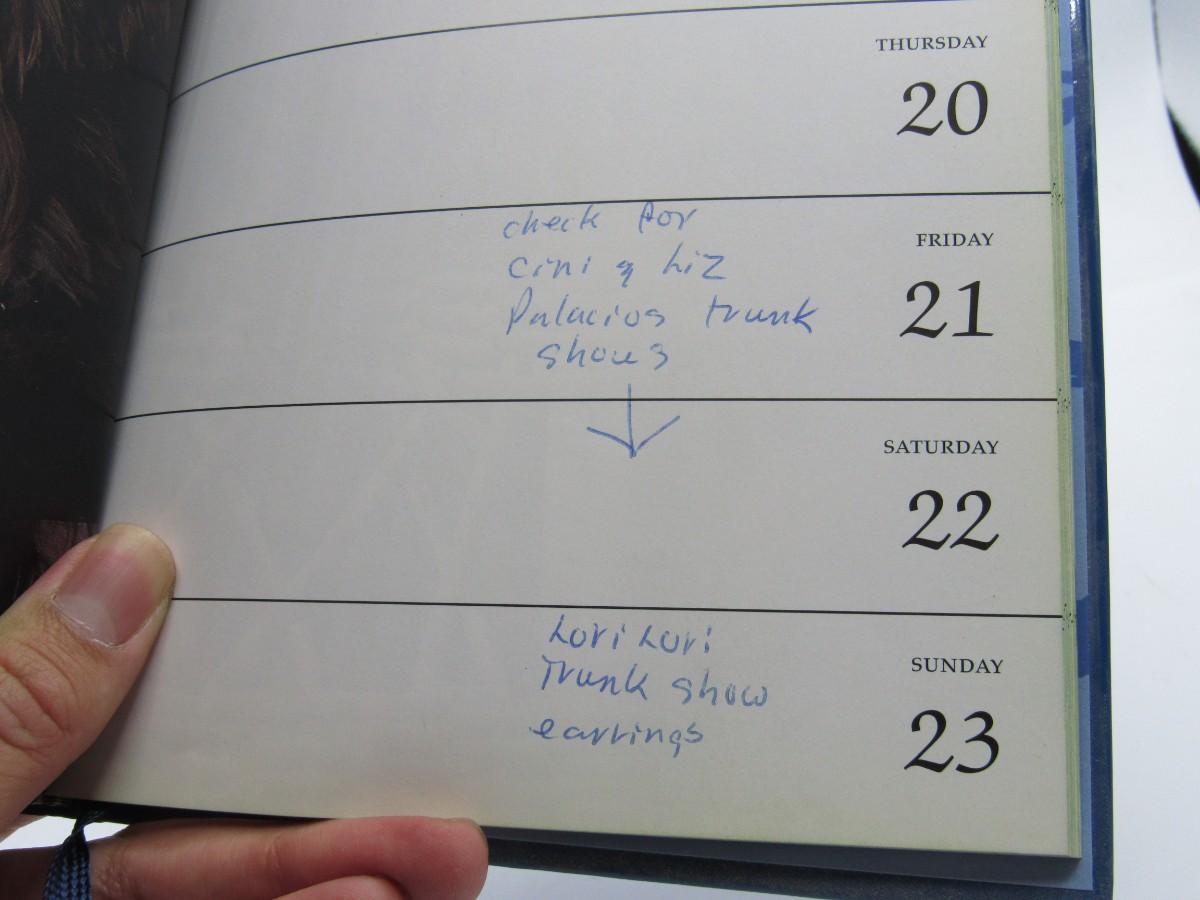 THURSDAY
20
FRIDAY
21
check for
Cini & Liz
Palacios trunk
shows
SATURDAY
22
SUNDAY
23
Lori Lori
Trunk show
earrings